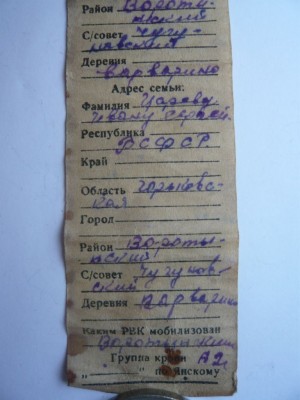 Район Вороты-
нский
С/совет Чугу-
новский
Деревня
Варварино
Адрес семьи:
Фамилия Цареву
Ивану Сергей.
Республика
РСФСР
Край
Область Горьковс-
кая
Город
Район Вороты-
нский
С/совет Чугунов-
ский
Деревня Варварино
Каким РВК мобилизован
Воротынским
Группа крови А2
„ “ по Янскому